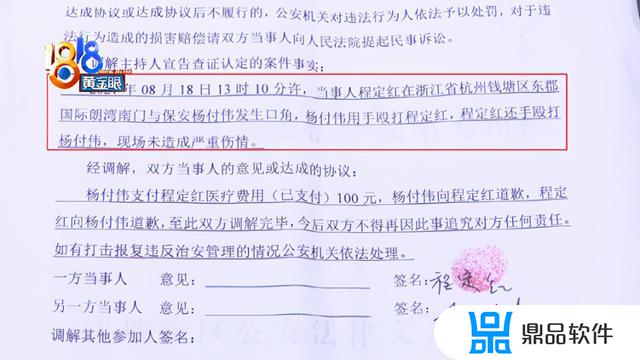 达成协议或达成协议后不履行的，公安机关对违法行为人依法予以处罚，对于违
法行为造成的损害赔偿请双方当事人向人民法院提起民事诉讼。
调解主持人宣告查证认定的案件事实：
1818
黄金眼
年 08 月 18 日 13 时 10 分许，当事人程定红在浙江省杭州钱塘区东郡
国际朗湾南门与保安杨付伟发生口角，杨付伟用手殴打程定红，程定红还手殴打
杨付伟，现场未造成严重伤情。
经调解，双方当事人的意见或达成的协议：
杨付伟支付程定红医疗费用（已支付）100 元，杨付伟向程定红道歉，程定
红向杨付伟道歉，至此双方调解完毕，今后双方不得再因此事追究对方任何责任。
如有打击报复违反治安管理的情况公安机关依法处理。
一方当事人 意见： 签名：程定红
另一方当事人 意见： 签名：
调解其他参加人签名：
鼎品软件